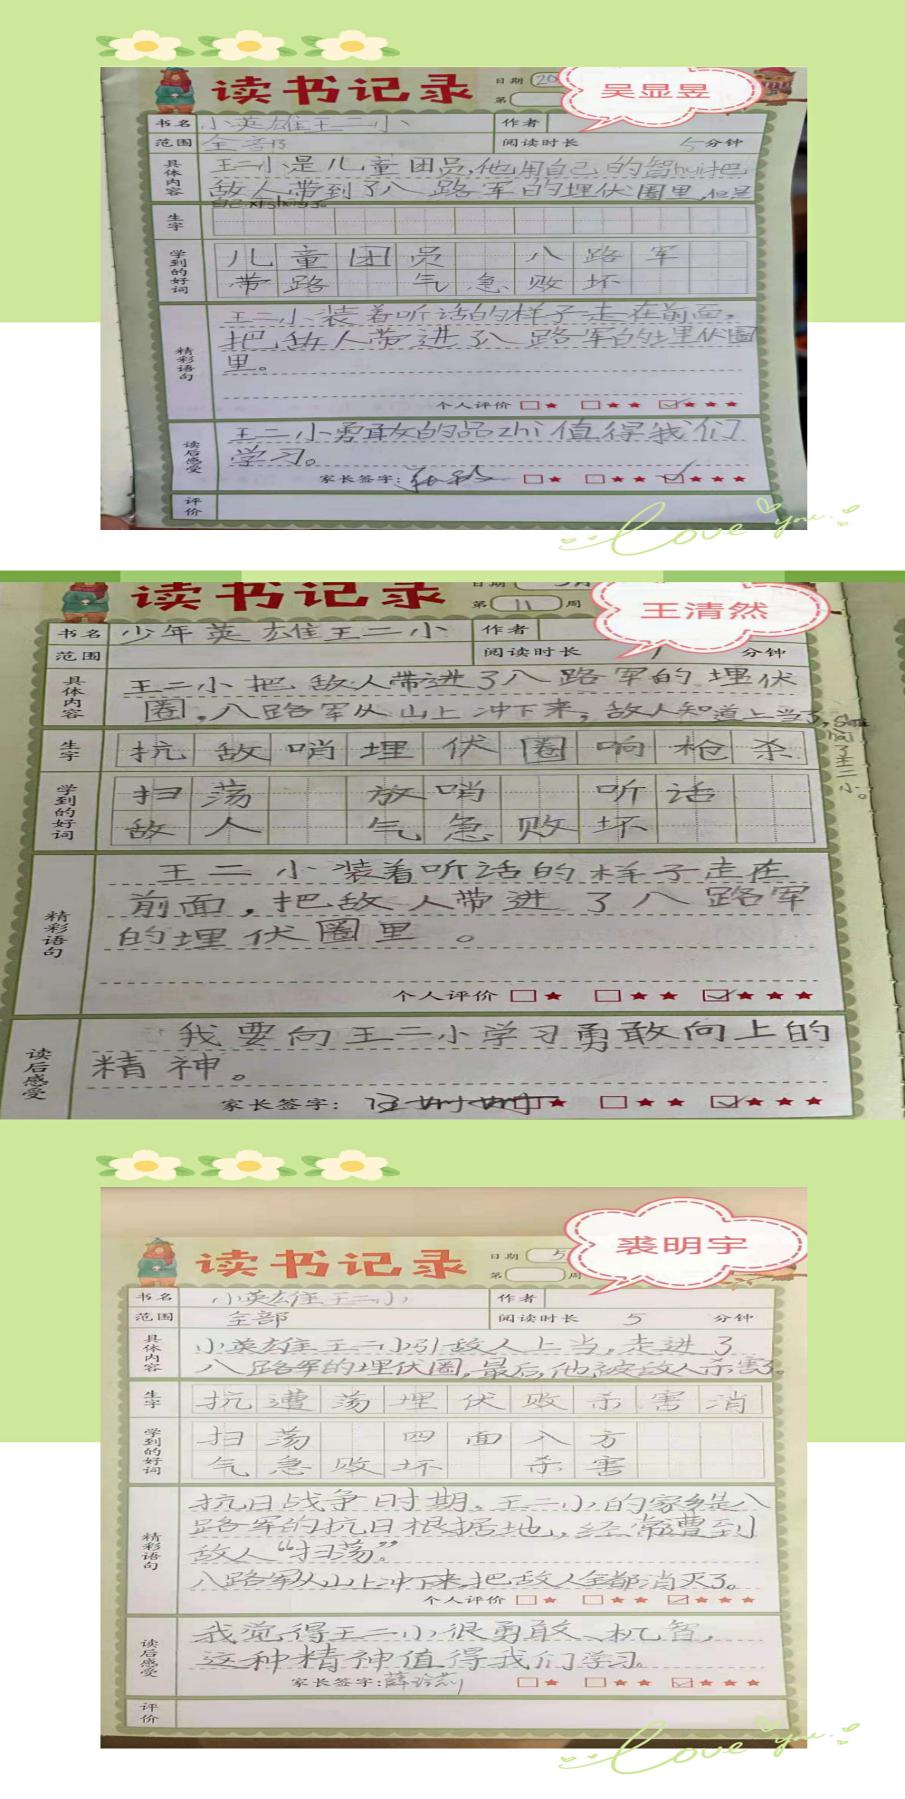 读书记录
日期 20
吴显昱
第
书名 小英雄王二小 作者
范围 全部 阅读时长 5分钟
具体内容 王二小是儿童团员,他用自己的智hui把
敌人带到了八路军的埋伏圈里,但是
自己
生字
学到的好词 儿童团员 八路军
带路 气急败坏
精彩语句 王二小装着听话的样子走在前面,
把敌人带进了八路军的埋伏圈
里。
个人评价 ★ ★★ ★★★
读后感受 王二小勇敢的品zhi值得我们
学习。
家长签字: ★ ★★ ★★★
评价
Love you
读书记录
日期
第 11 周
王清然
书名 少年英雄王二小 作者
范围 阅读时长 分钟
具体内容 王二小把敌人带进了八路军的埋伏
圈,八路军从山上冲下来,敌人知道上当了,
了王二小。
生字 抗敌哨埋伏圈响枪杀
学到的好词 扫荡 放哨 听话
敌人 气急败坏
精彩语句 王二小装着听话的样子走在
前面,把敌人带进了八路军
的埋伏圈里。
个人评价 ★ ★★ ★★★
读后感受 我要向王二小学习勇敢向上的
精神。
家长签字: ★ ★★ ★★★
读书记录
日期 5
第 周
裘明宇
书名 小英雄王二小 作者
范围 全部 阅读时长 5 分钟
具体内容 小英雄王二小引敌人上当,走进了
八路军的埋伏圈,最后,他被敌人杀害了。
生字 抗遭荡埋伏败杀害消
学到的好词 扫荡 四面八方
气急败坏 杀害
精彩语句 抗日战争时期,王二小的家乡是八
路军的抗日根据地,经常遭到
敌人“扫荡”。
八路军从山上冲下来,把敌人全都消灭了。
个人评价 ★ ★★ ★★★
读后感受 我觉得王二小很勇敢、机智,
这种精神值得我们学习。
家长签字: ★ ★★ ★★★
评价
Love you